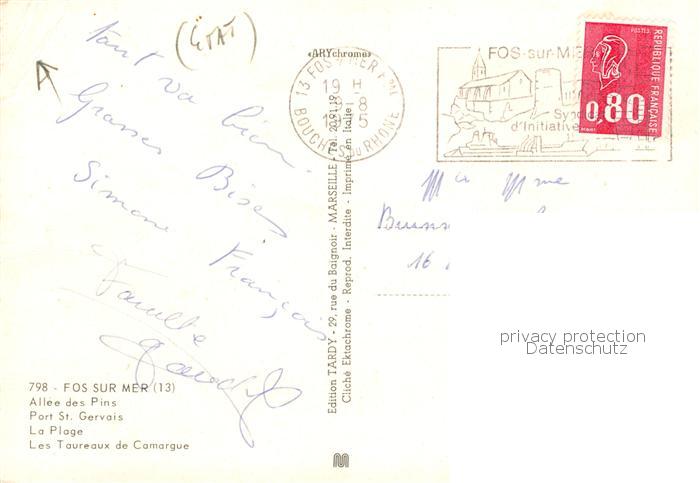 (ETAT)
tout va bien.
Grosses Bises
Simone François
Famille
«ARYchrome»
13 FOS S/MER Ppal
19 H
8
5
BOUCHES DU RHONE
FOS-sur-MER
Syndicat
d'Initiative
POSTES
REPUBLIQUE FRANÇAISE
0,80
Mr Mme
16
privacy protection
Datenschutz
Edition TARDY - 29, rue du Baignoir - MARSEILLE - Tél. 20.91.19
Cliché Ektachrome - Reprod. Interdite - Imprimé en Italie
798 - FOS SUR MER (13)
Allée des Pins
Port St. Gervais
La Plage
Les Taureaux de Camargue